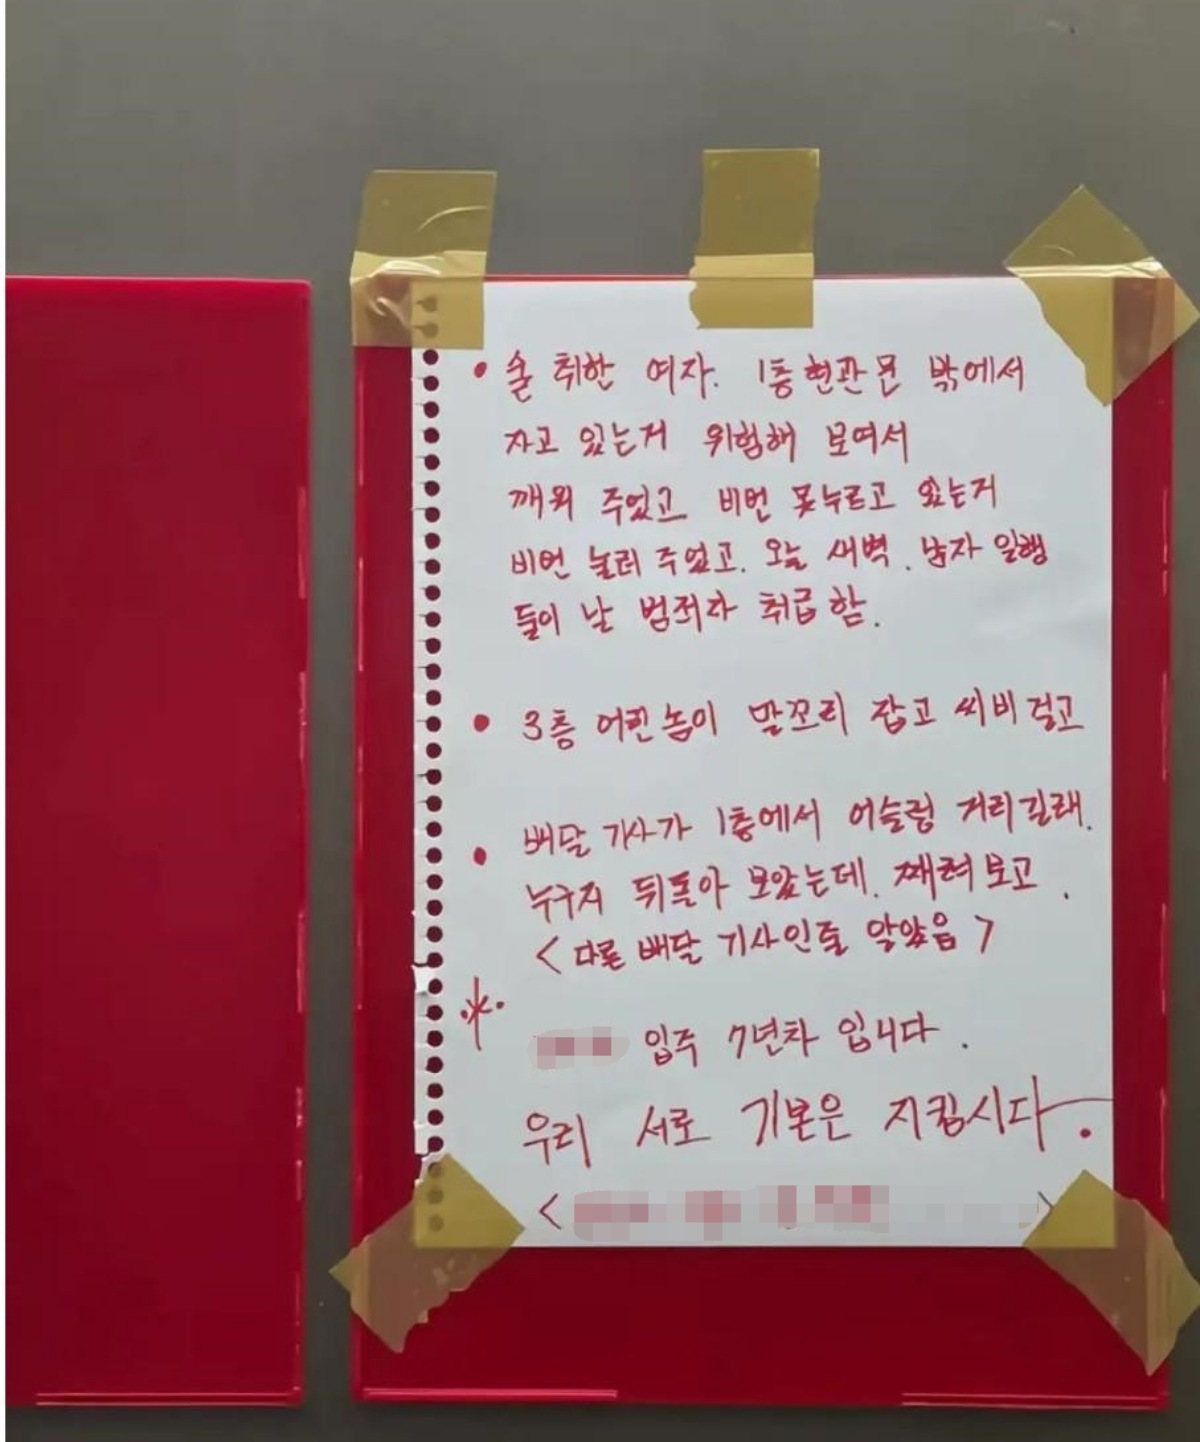 • 술 취한 여자. 1층현관문 밖에서
자고 있는거 위험해 보여서
깨워 주었고 비번 못누르고 있는거
비번 눌러 주었고. 오늘 새벽. 남자 일행
들이 날 범죄자 취급함.
• 3층 어린놈이 말꼬리 잡고 씨비걸고
• 배달기사가 1층에서 어슬렁 거리길래.
누구지 뒤돌아 보았는데. 째려보고.
<다른 배달 기사인줄 알았음>
※ 입주 7년차 입니다.
우리 서로 기본은 지킵시다.
< >